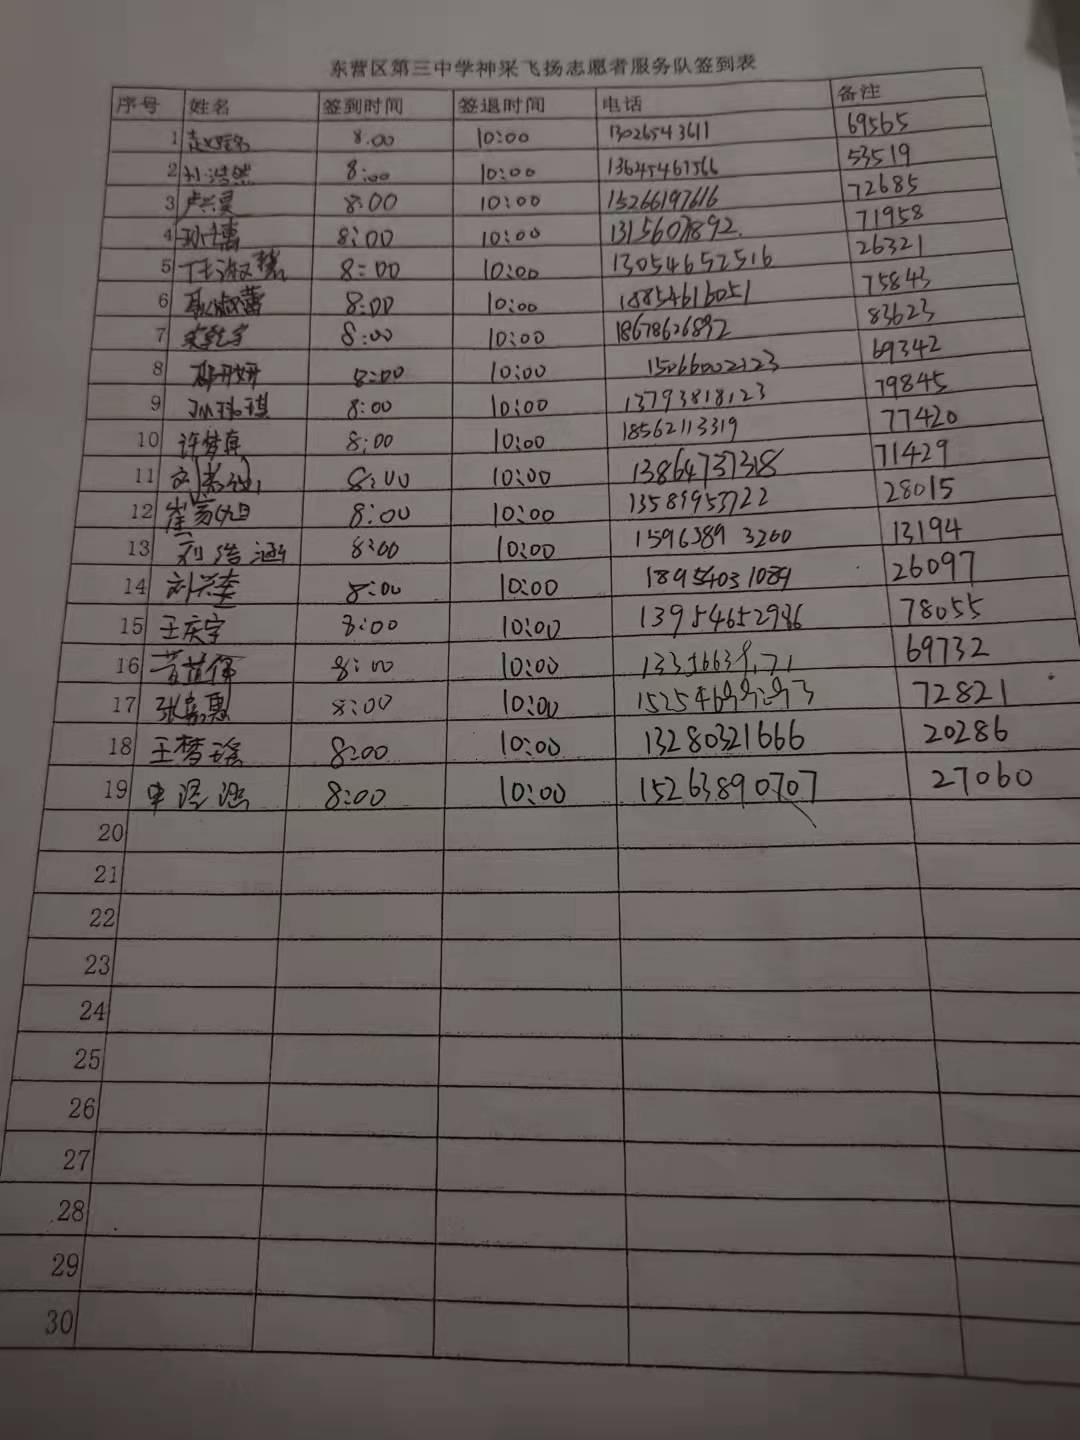 东营区第三中学神采飞扬志愿者服务队签到表
序号 姓名 签到时间 签退时间 电话 备注
1 8:00 10:00 13026543611 69565
2 孙浩然 8:00 10:00 13645467566 53519
3 卢兴昊 8:00 10:00 15266197616 72685
4 8:00 10:00 1315607892 71958
5 任淑慧 8:00 10:00 13054652516 26321
6 8:00 10:00 18854616051 75843
7 8:00 10:00 18678626892 83623
8 8:00 10:00 15066002123 69342
9 8:00 10:00 13793818123 79845
10 许梦真 8:00 10:00 18562113319 77420
11 8:00 10:00 13864737318 71429
12 8:00 10:00 13589953722 28015
13 刘浩涵 8:00 10:00 15963893260 13194
14 刘兴奎 8:00 10:00 18954031089 26097
15 王庆宇 8:00 10:00 13954652986 78055
16 8:00 10:00 69732
17 张嘉惠 8:00 10:00 72821
18 王梦瑶 8:00 10:00 13280321666 20286
19 8:00 10:00 15263890707 27060
20
21
22
23
24
25
26
27
28
29
30